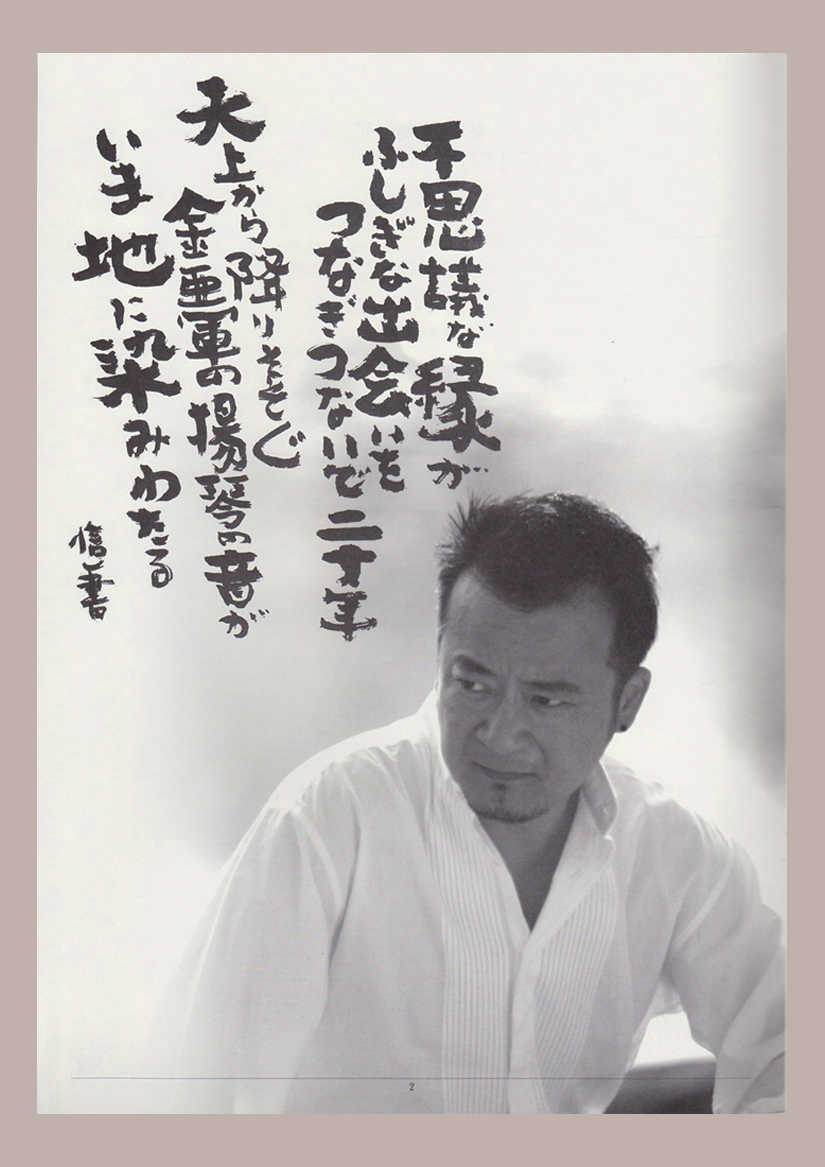 不思議な縁が
ふしぎな出会いを
つなぎつないで二十年
天上から降りそそぐ
金亜軍の揚琴の音が
いま地に染みわたる
信吾書
2